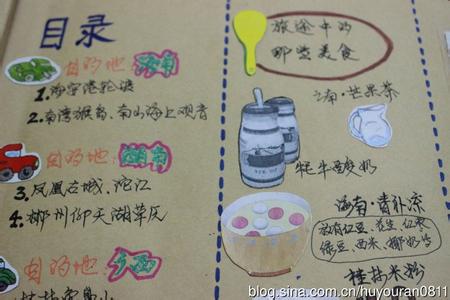 目录
目的地:海南
1.海安港轮渡
2.南湾猴岛、南山海上观音
目的地:湖南
3.凤凰古城、沱江
4.郴州仰天湖草原
目的地:广西
旅途中的
那些美食
云南·芒果茶
牦牛酸奶
海南·青补凉
放有红豆、花生、红枣
绿豆、西米、椰奶等
桂林米粉
blog.sina.com.cn/huyouran0811